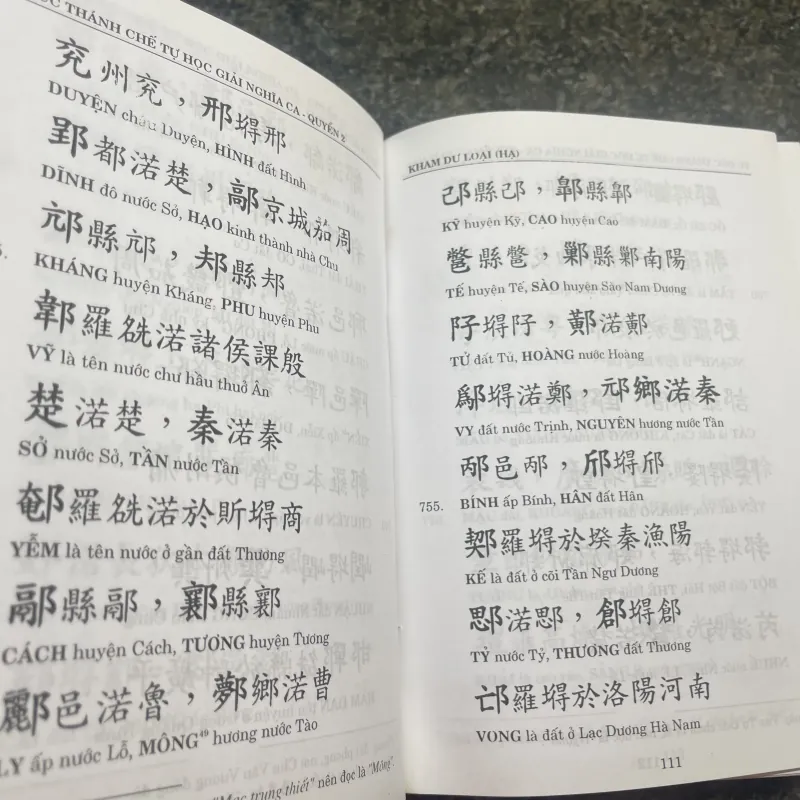 ĐỨC THÁNH CHẾ TỰ HỌC GIẢI NGHĨA CA - QUYỂN 2
兖州兖，邢𡐙邢
DUYỆN châu Duyện, HÌNH đất Hình
郢都渃楚，鄗京城茄周
DĨNH đô nước Sở, HẠO kinh thành nhà Chu
邟縣邟，邞縣邞
KHÁNG huyện Kháng, PHU huyện Phu
鄿羅𠸛渃諸侯課殷
VỸ là tên nước chư hầu thuở Ân
楚渃楚，秦渃秦
SỞ nước Sở, TẦN nước Tần
郁羅𠸛渃於𧵆𡐙商
YỄM là tên nước ở gần đất Thương
鄏縣鄏，鄴縣鄴
CÁCH huyện Cách, TƯƠNG huyện Tương
酈邑渃魯，鄸鄉渃曹
LY ấp nước Lỗ, MÔNG⁴⁹ hương nước Tào
"Mạc trung thiết" nên đọc là "Mông".
KHAM DƯ LOẠI (HẠ)
邔縣邔，鄡縣鄡
KỸ huyện Kỹ, CAO huyện Cao
縣，鄛縣鄛南陽
TẾ huyện Tế, SÀO huyện Sào Nam Dương
𡐙，鄚渃鄚
TỬ đất Tử, HOÀNG nước Hoàng
鄢𡐙渃鄭，邧鄉渃秦
VY đất nước Trịnh, NGUYÊN hương nước Tần
邴邑邴，𡐙
755. BÍNH ấp Bính, HÂN đất Hân
羅𡐙於揆秦漁陽
KẾ là đất ở cõi Tần Ngư Dương
渃，𡐙
TỶ nước Tỷ, THƯƠNG đất Thương
邙羅𡐙於洛陽河南
VONG là đất ở Lạc Dương Hà Nam
111